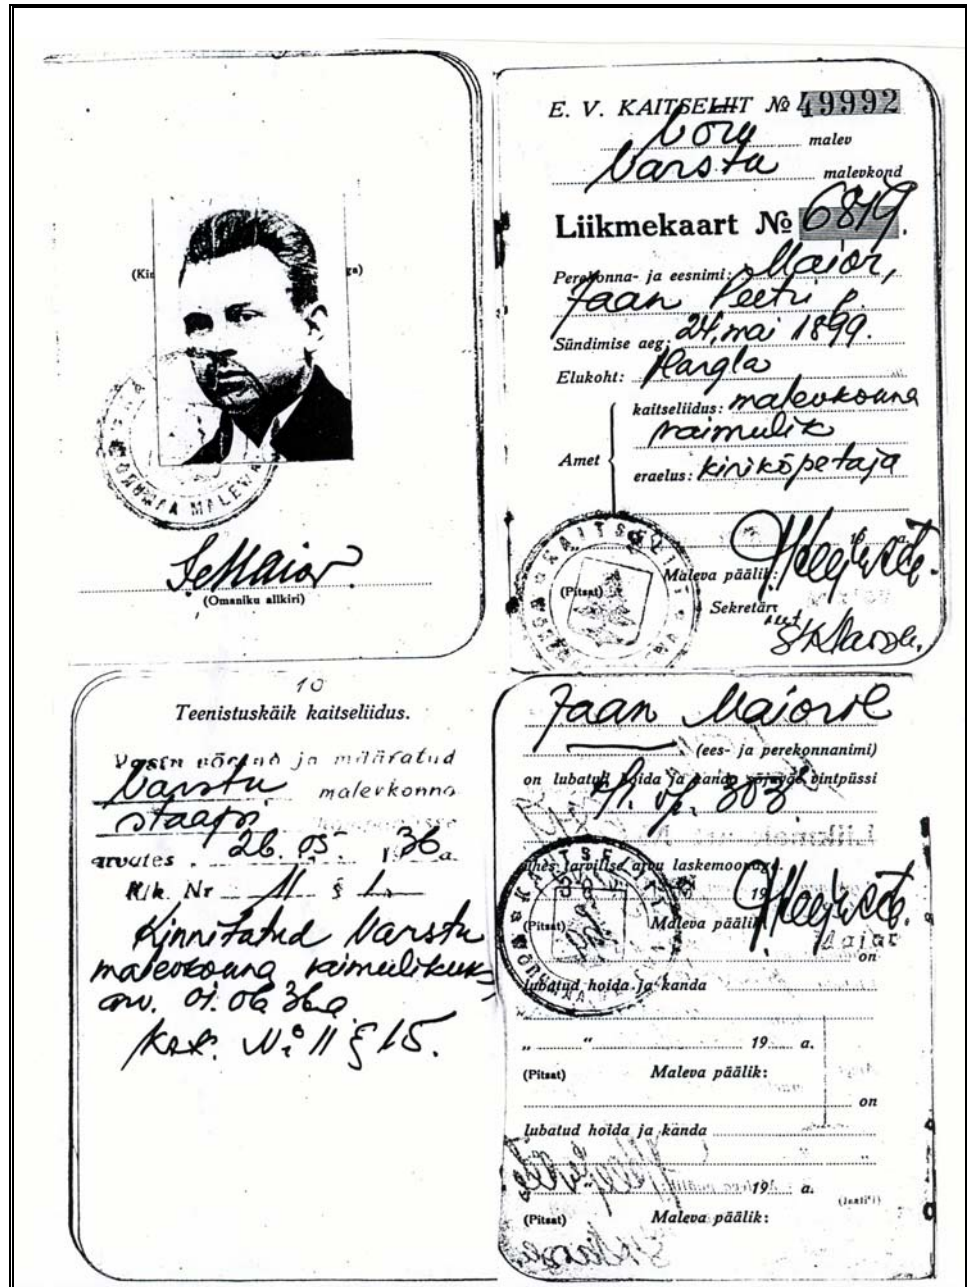 (Omaniku allkiri)
E. V. KAITSELIIT № 49992
Võru malev
Varstu malevkond
Liikmekaart № 6819.
Perekonna- ja eesnimi: Maior,
Jaan Peetri p.
Sündimise aeg: 24. mai 1899.
Elukoht: Hargla
Amet
kaitseliidus: malevkonna
vaimulik
eraelus: kirikõpetaja
(Pitsat)
Maleva päälik:
Sekretär
10
Teenistuskäik kaitseliidus.
Vastu võetud ja määratud
Varstu malevkonna
staapi
arvates 26. 05. 1936 a.
K/k. Nr 11 § 1
Kinnitatud Varstu
malevkonna vaimulikuks,
arv. 01. 06 36 a
Ksk. № 11 § 15.
Jaan Maioril
(ees- ja perekonnanimi)
on lubatud hoida ja kanda sõjaväe vintpüssi
ühes tarvilise arvu laskemoonaga.
19
(Pitsat) Maleva päälik:
on
lubatud hoida ja kanda
„ “ 19 a.
(Pitsat) Maleva päälik:
on
lubatud hoida ja kanda
„ “ 19 a.
(Pitsat) Maleva päälik: